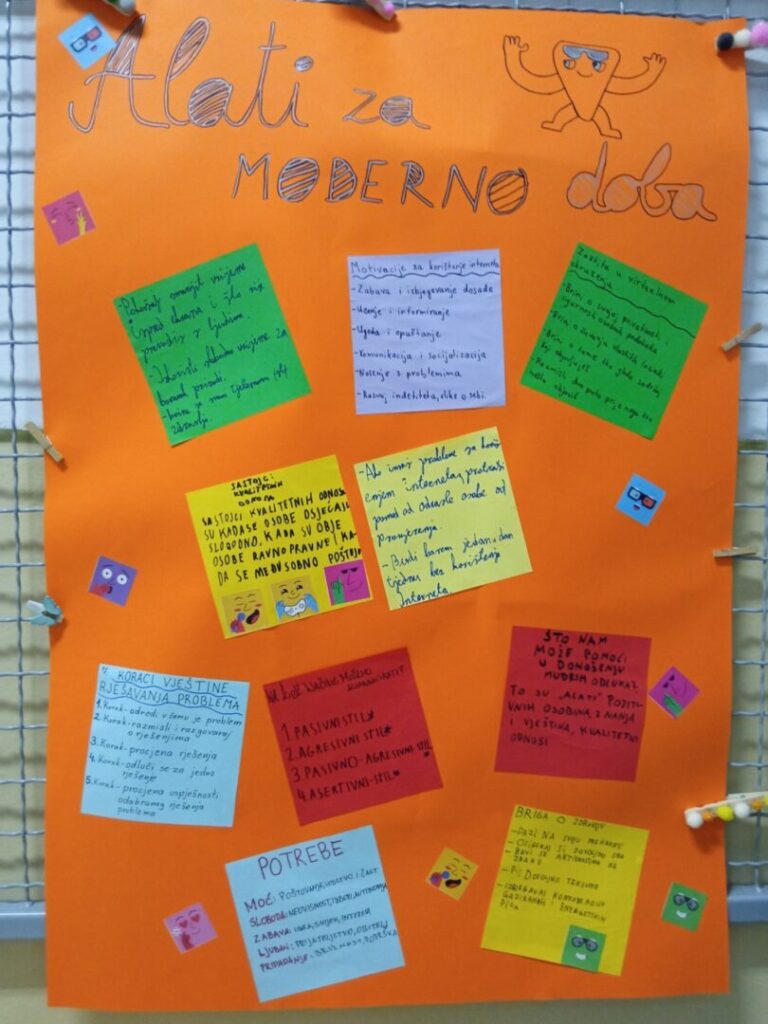 Alati za
MODERNO doba
-Pokušaj smanjit vrijeme
ispred ekrana i što više
provodi s ljudima.
-Iskoristi slobodno vrijeme za
boravak prirodi.
zdravlje.
Motivacije za korištenje interneta
-Zabava i izbjegavanje dosade
-Učenje i informiranje
-Ugoda i opuštanje
-Komunikacija i socijalizacija
-Nošenje s problemima
-Razvoj indetiteta, slike o sebi.
Zaštita u virtualnom
okruženju
-Brini o svojoj privatnosti i
sigurnosti osobnih podataka
-Brini o
-Brini o tome što
objavljuješ
-Razmisli dva puta prije nego što
nešto objaviš
SASTOJCI
KVALITETNIH
ODNOSA
SASTOJCI KVALITETNIH ODNOSA
SU KADA SE OSOBE OSJEĆAJU
SLOBODNO, KADA SU OBJE
OSOBE RAVNOPRAVNE I KA-
DA SE MEĐUSOBNO POŠTUJU
-Ako imaš problema sa korišt
enjem interneta, potraži
pomoć od odrasle osobe od
povjerenja.
-Budi barem jedan dan
tjedno bez korištenja
interneta.
KORACI VJEŠTINE
RJEŠAVANJA PROBLEMA
1. Korak-odredi v čemu je problem
2. Korak-razmisli i razgovaraj
o rješenjima
3. Korak-procjena rješenja
4. Korak-odluči se za jedno
rješenje
5. Korak-procjena uspješnosti
odabranog rješenja
problema
1. PASIVNI STIL*
2. AGRESIVNI STIL*
3. PASIVNO-AGRESIVNI-STIL*
4. ASERTIVNI-STIL*
ŠTO NAM
MOŽE POMOĆI
U DONOŠENJU
MUDRIH ODLUKA?
TO SU "ALATI" POZITI-
VNIH OSOBINA, ZNANJA
I VJEŠTINA, KVALITETNI
ODNOSI
POTREBE
MOĆ: POŠTOVANJE,
SLOBODA: NEOVISNOST, IZBORI, AUTONOMIJA
ZABAVA: IGRA, SMIJEH, INTERES
LJUBAV: PRIJATELJSTVO, OBITELJ
PRIPADANJE: BRIŽNOST, PODRŠKA
BRIGA O ZDRAVLJU
-PAZI NA SVOJU PREHRANU
-OSIGURAJ SI DOVOLJNO SNA
BAVI SE AKTIVNOSTIMA NA
ZRAKU
-PIJ DOVOLJNO TEKUĆINE
-IZBJEGAVAJ KONZUMIRANJE
GAZIRANIH I ENERGETSKIH
PIĆA